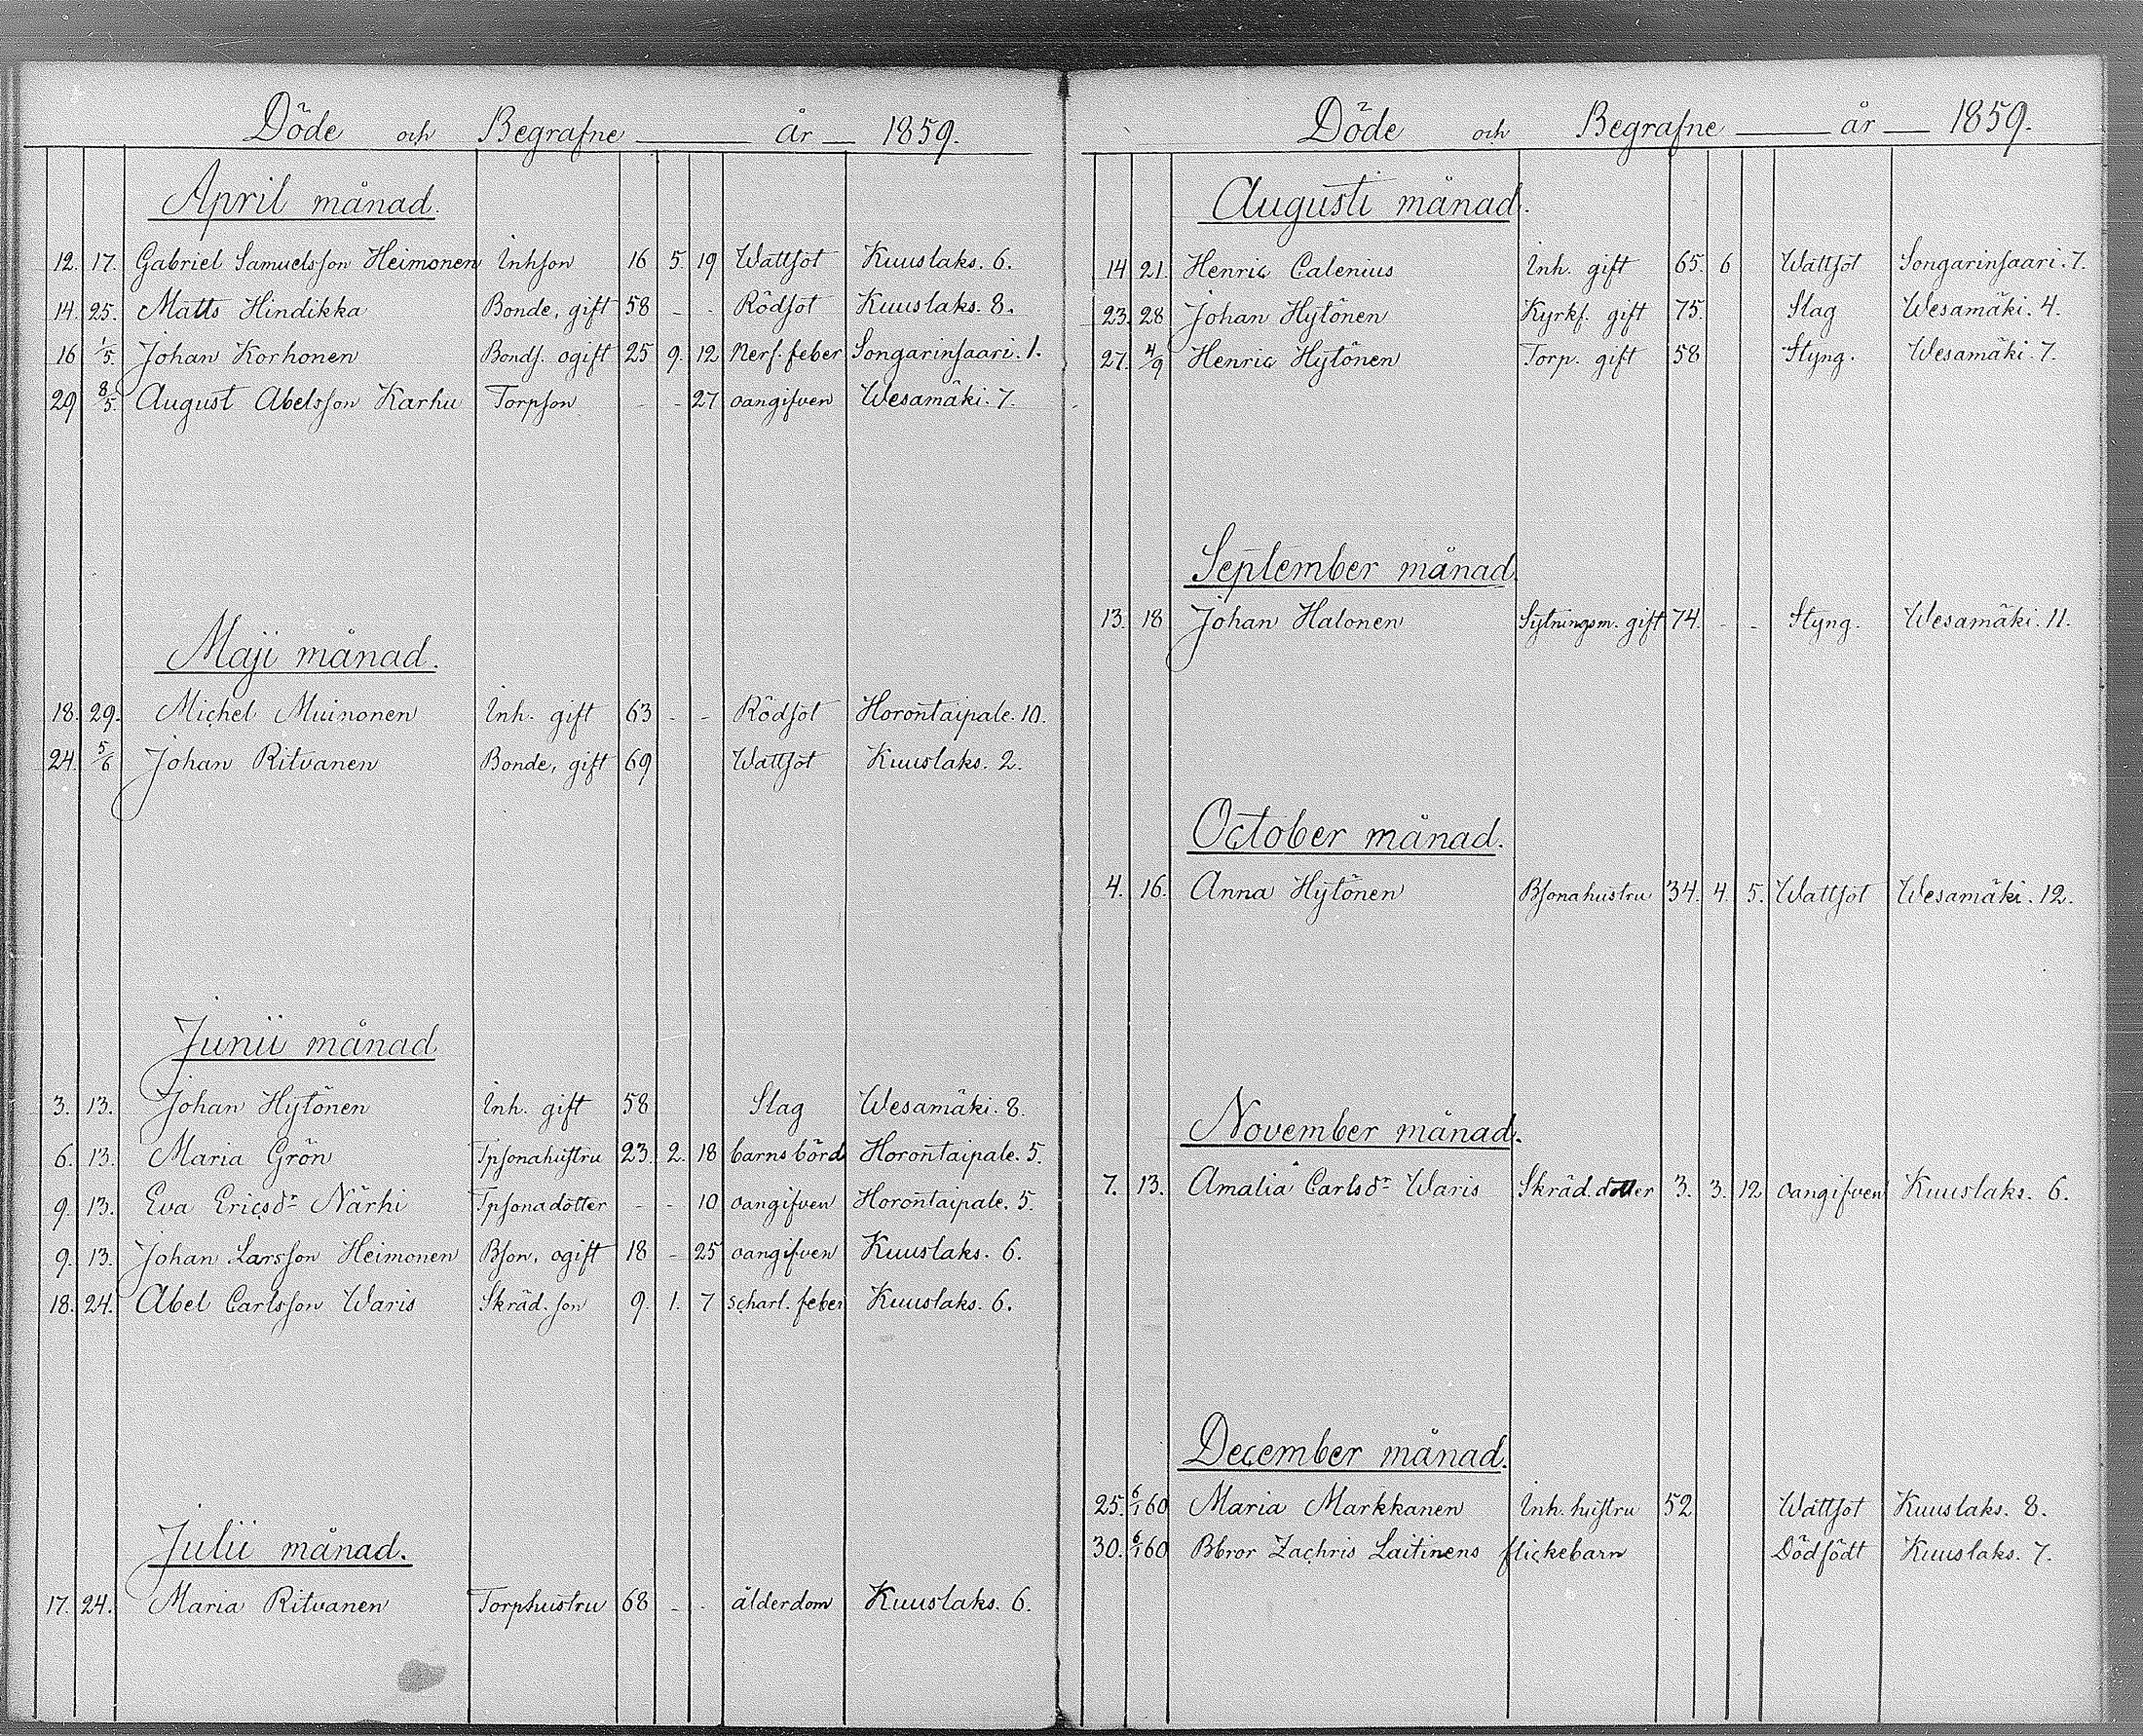 Döde och Begrafne år 1859.
April månad.
12. 17. Gabriel Samuelsson Heimonen Inhson 16 5. 19 Wattsot Kuuslaks. 6.
14. 25. Matts Hindikka Bonde, gift 58 - - Rödsot Kuuslaks. 8.
16 1/5 Johan Korhonen Bonds. ogift 25 9. 12 Nerf. feber Songarinsaari. 1.
29 8/5. August Abelsson Karhu Torpson - - 27 oangifven Wesamäki. 7.
Maji månad.
18. 29. Michel Muinonen Inh. gift 63 - - Rödsot Horontaipale. 10.
24. 5/6 Johan Ritvanen Bonde, gift 69 Wattsot Kuuslaks. 2.
Junii månad
3. 13. Johan Hytönen Inh. gift 58 Slag Wesamäki. 8.
6. 13. Maria Grön Tpsonahustru 23. 2. 18 barnsbörd Horontaipale. 5.
9. 13. Eva Ericsdr Närhi Tpsonadotter - - 10 oangifven Horontaipale. 5.
9. 13. Johan Larsson Heimonen Bson, ogift 18 - 25 oangifven Kuuslaks. 6.
18. 24. Abel Carlsson Waris Skräd. son 9. 1. 7 scharl. feber Kuuslaks. 6.
Julii månad.
17. 24. Maria Ritvanen Torphustru 68 - - ålderdom Kuuslaks. 6.
Döde och Begrafne år 1859.
Augusti månad.
14 21. Henric Calenius Inh. gift 65. 6 Wattsot Songarinsaari. 7.
23. 28 Johan Hytönen Kyrkf. gift 75. Slag Wesamäki. 4.
27. 4/9 Henric Hytönen Torp. gift 58 Styng. Wesamäki. 7.
September månad.
13. 18 Johan Halonen Sytningsm. gift 74. - - Styng. Wesamäki. 11.
October månad.
4. 16. Anna Hytönen Bsonahustru 34. 4. 5. Wattsot Wesamäki. 12.
November månad.
7. 13. Amalia Carlsdr Waris Skräd. dotter 3. 3. 12 oangifven Kuuslaks. 6.
December månad.
25. 6/1 60 Maria Markkanen Inh. hustru 52 Wattsot Kuuslaks. 8.
30. 6/1 60 Bbror Zachris Laitinens flickebarn Dödfödt Kuuslaks. 7.